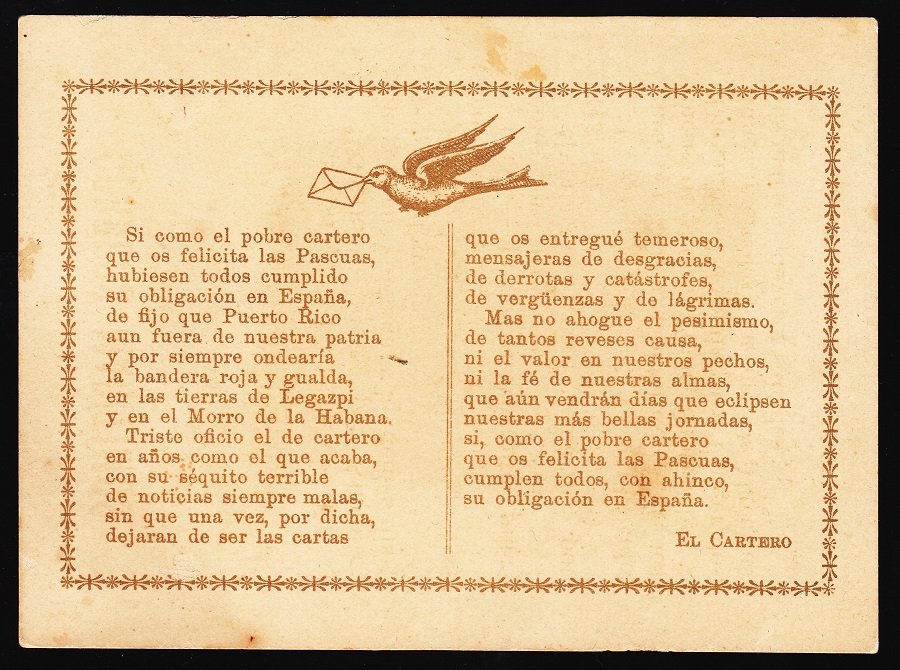 Si como el pobre cartero
que os felicita las Pascuas,
hubiesen todos cumplido
su obligación en España,
de fijo que Puerto Rico
aun fuera de nuestra patria
y por siempre ondearía
la bandera roja y gualda,
en las tierras de Legazpi
y en el Morro de la Habana.
Triste oficio el de cartero
en años como el que acaba,
con su séquito terrible
de noticias siempre malas,
sin que una vez, por dicha,
dejaran de ser las cartas
que os entregué temeroso,
mensajeras de desgracias,
de derrotas y catástrofes,
de vergüenzas y de lágrimas.
Mas no ahogue el pesimismo,
de tantos reveses causa,
ni el valor en nuestros pechos,
ni la fé de nuestras almas,
que aún vendrán días que eclipsen
nuestras más bellas jornadas,
si, como el pobre cartero
que os felicita las Pascuas,
cumplen todos, con ahinco,
su obligación en España.
EL CARTERO